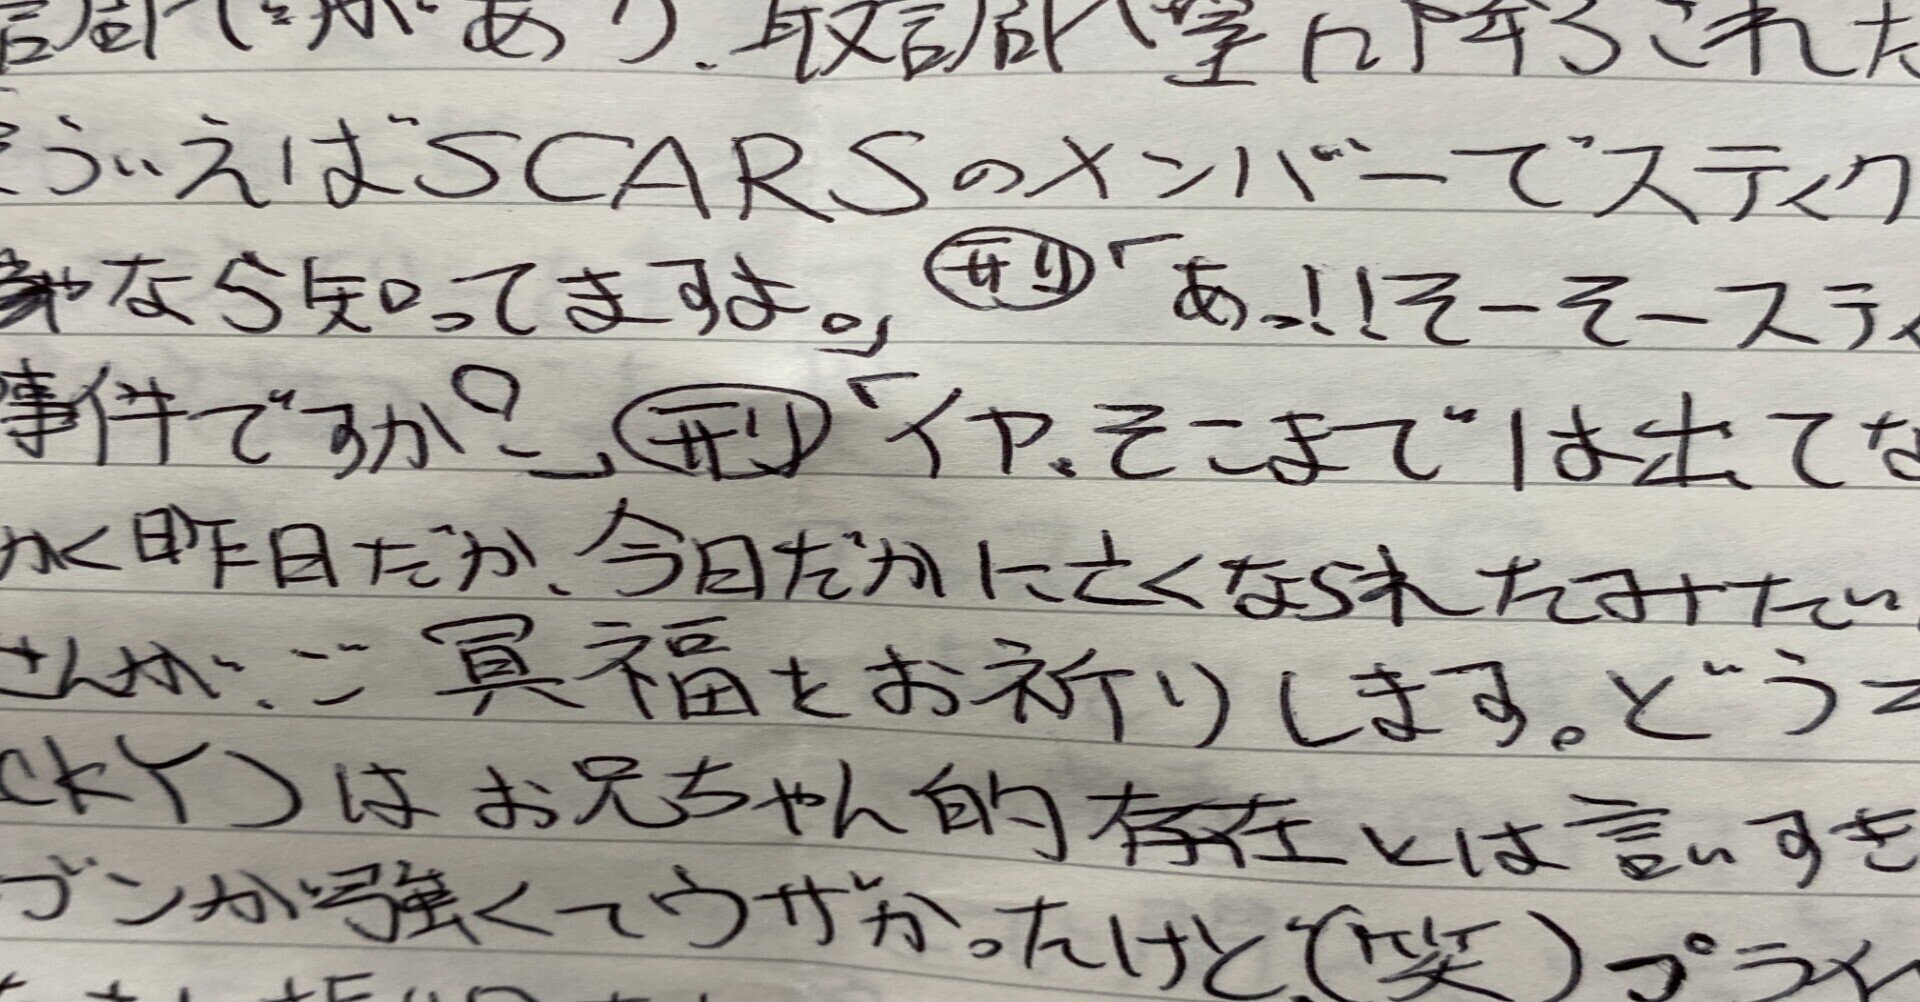 調べがあり、取調べ室に降ろされた
そういえばSCARSのメンバーでスティク
なら知ってますよ。」 刑「あっ!!そーそースティ
事件ですか?」 刑「イヤ、そこまでは出てな
かく昨日だか、今日だかに亡くなられたみたい
さんが、ご冥福をお祈りします。どう
ckY)はお兄ちゃん的存在とは言いすぎ
ブンが強くてウザかったけど(笑)プライ